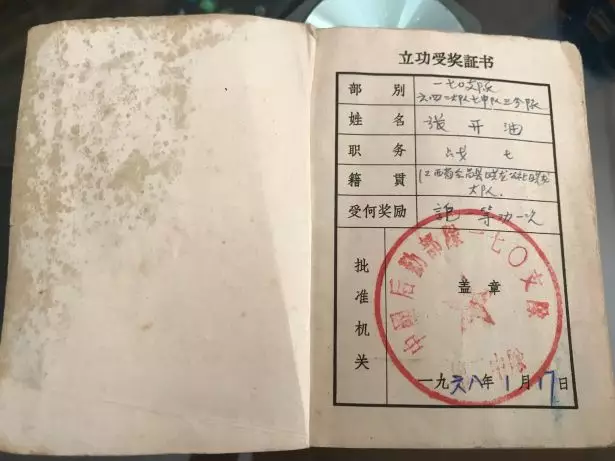 立功受奖証书
部别 一七〇支队
六四二大队七中队三分队
姓名 张开油
职务 战士
籍貫
大队.
受何奖励 等功一次
批准机关
盖章
中国后勤部队一七〇支队
一九六八年1月17日